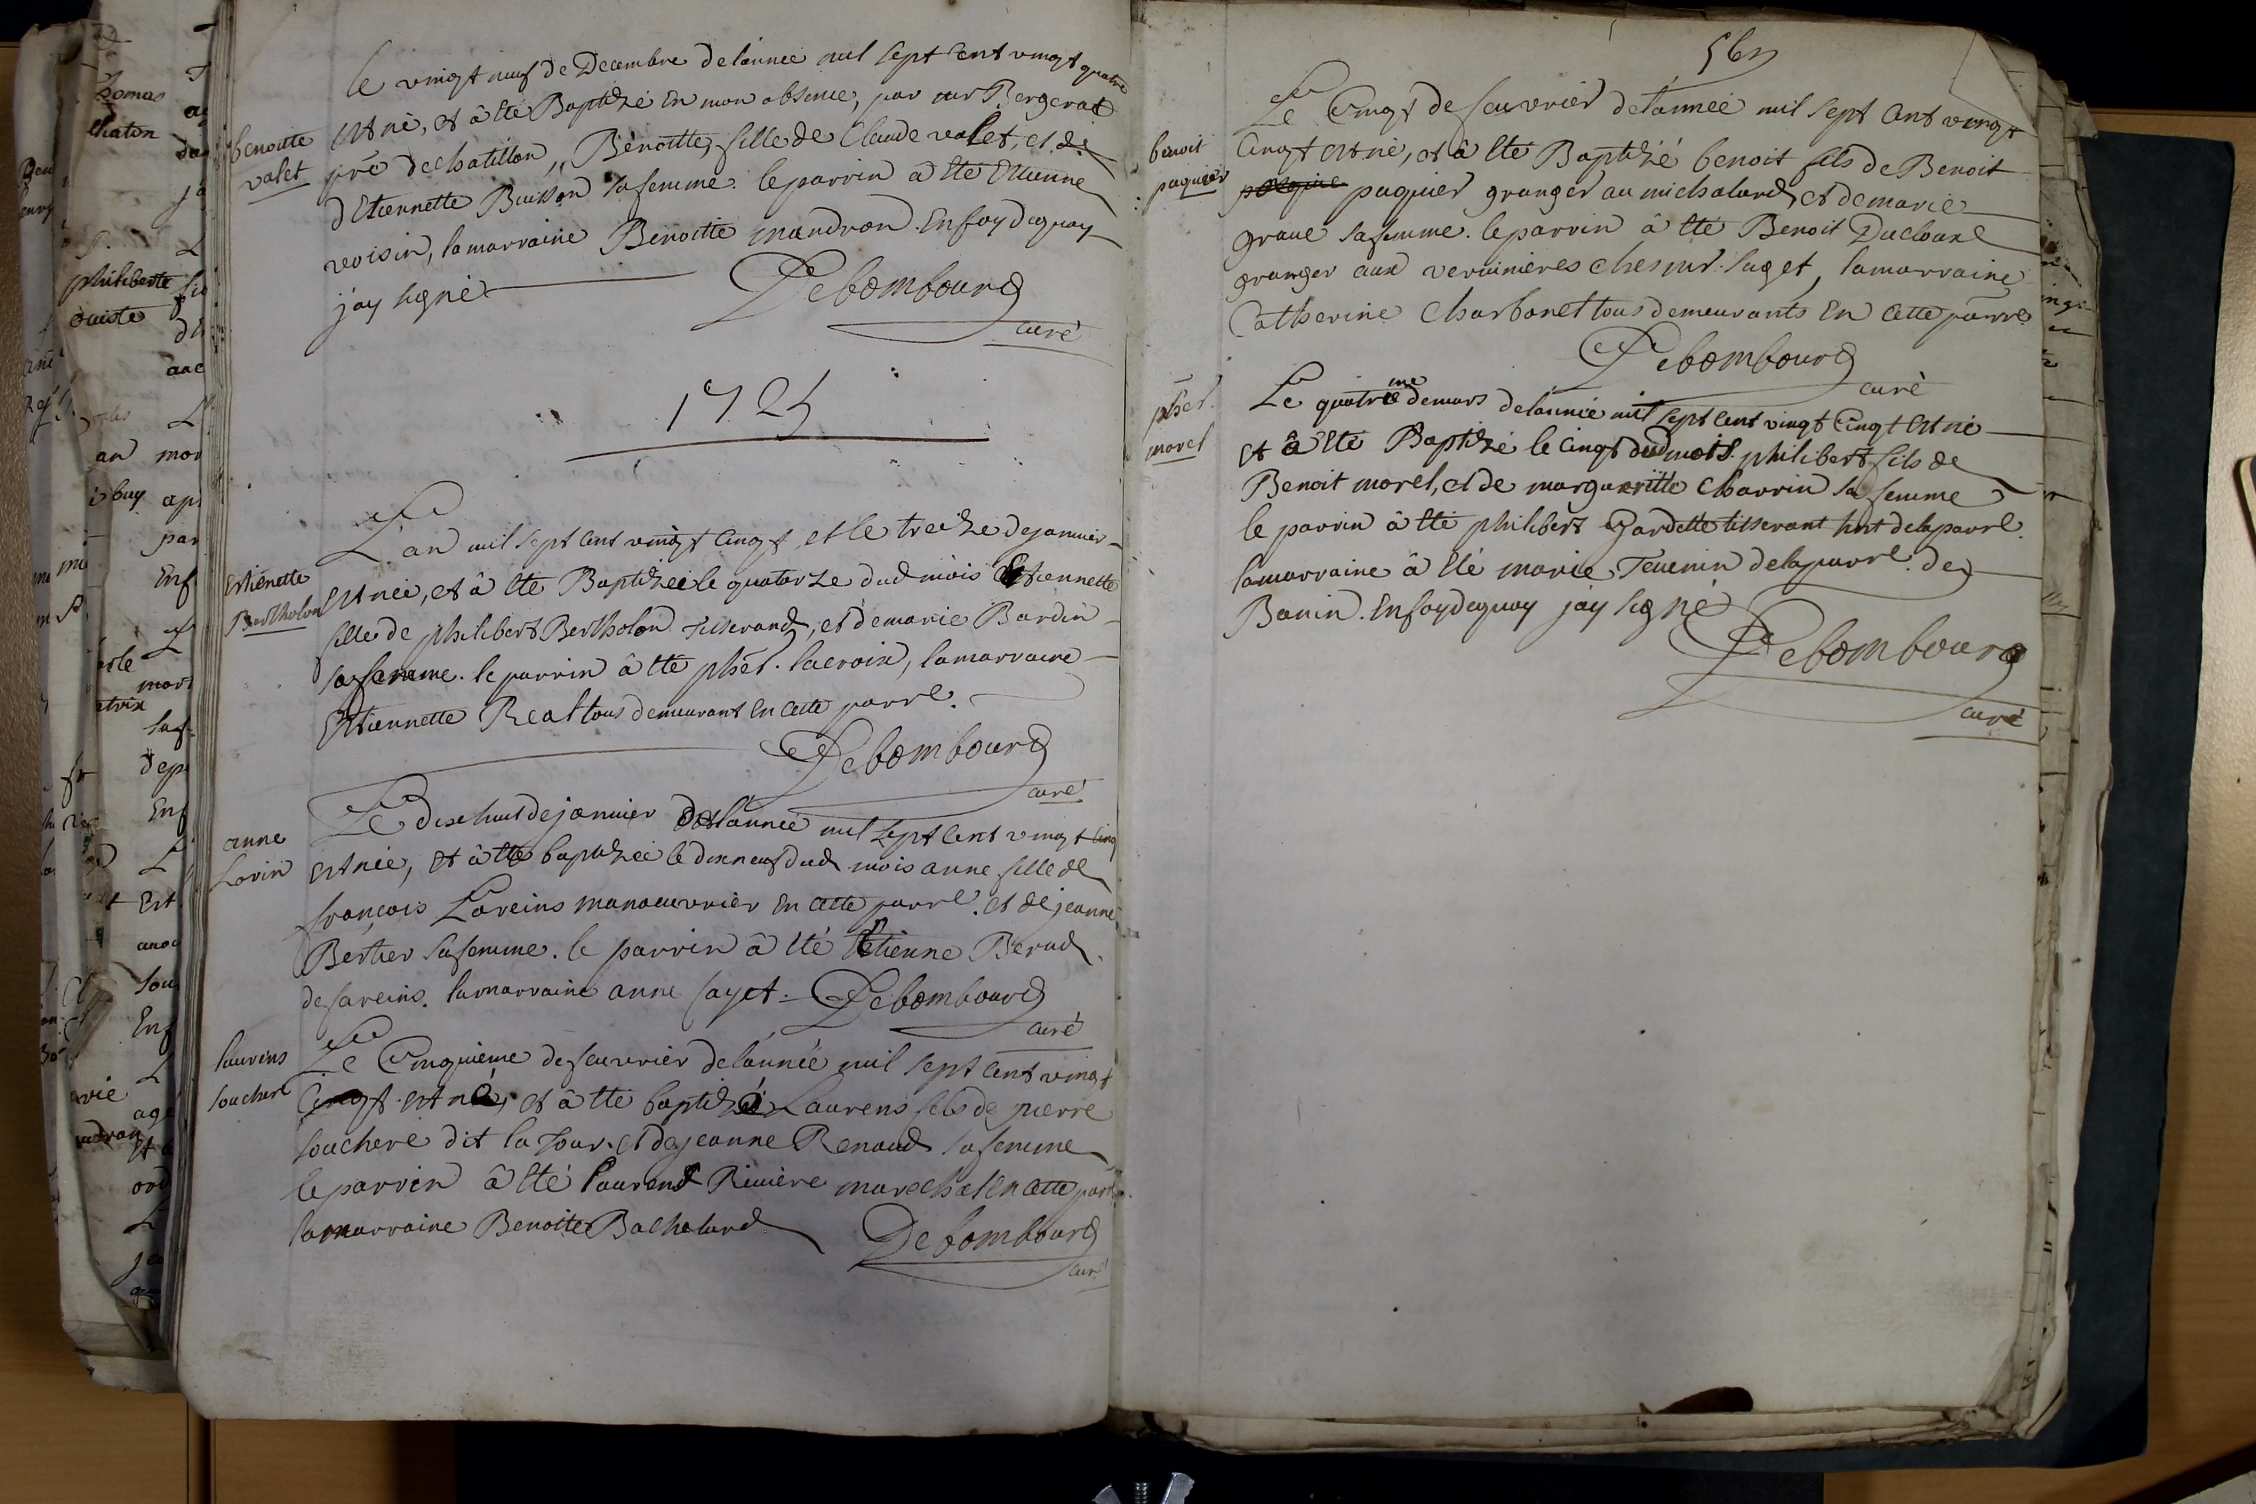 le vingt neuf de Decembre de lannee mil sept cent vingt quatre
benoitte
valet
est né, et â êté Baptizé en mon absence, par mr Bergerat
pre de chatillon, Benoitte, fille de Claude valet, et de
d'Etiennette Buisson sa femme. le parrin a êté Etienne
voisin, la marraine Benoitte mandron. En foy de quoy
j'ay signé
Debombourg
curé
1725
L'an mil sept cent vingt cinqt et le treize de janvier
Estiènette
Bertholon
est née, et â êté Baptizée le quatorze dud mois Estiennette
fille de philibert Bertholon tisserand, et de marie Bardin
sa femme. le parrin â êté phêrt. lacroix, la marraine
Estiennette Real tous demeurant en cette parre.
Debombourg
curé
anne
Lorin
Le dixhuit de janvier de lannée mil sept cent vingt cinq
est née, et â êté baptizée le dixneuf dud mois anne fille de
françois Loreins manoeuvrier en cette parre. et de jeanne
Bertier sa femme. le parrin â êté Etienne Berud
de fareins. la marraine anne sayet. Debombourg
curé
laurens
souchere
Le Cinquieme de feuvrier de lannée mil sept cent vingt
Cinqt est né, et â êté baptizé Laurens fils de pierre
souchere dit la tour. et de jeanne Renaud sa femme
le parrin â êté laurens Riviere marechal en cette parr.
la marraine Benoite Bachelard
Debombourg
curé
569
benoit
paquier
Le Cinqt de feuvrier de lannée mil sept cent vingt
Cinqt est né, et â êté Baptizé benoit fils de Benoit
paquier granger au michalard, et de marie
graue sa femme. le parrin â êté Benoit Ducloux
granger aux veruinieres ches mr. saget, la marraine
Catherine Charbonet tous demeurants en cette parre
Debombourg
curé
phêrt.
morel
Le quatrieme de mars de lannée mil sept cent vingt Cinqt est né
et â êté Baptizé le cinqt dud mois. philibert fils de
Benoit morel, et de margueritte Charrin sa femme
le parrin â êté philibert Gardette tisserant hnt de la parre.
la marraine â êté marie Teuenin de la parre. de
Banin. En foy de quoy j'ay signé
Debombourg
curé